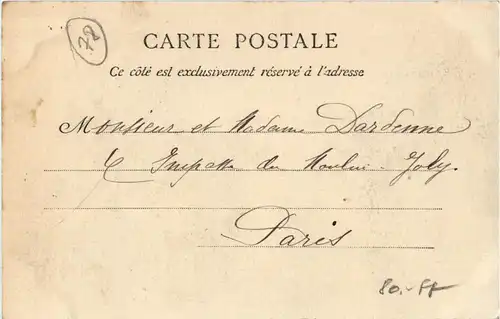 22
CARTE POSTALE
Ce côté est exclusivement réservé à l'adresse
Monsieur et Madame Dardenne
Impasse du Moulin-Joly.
Paris
80.-